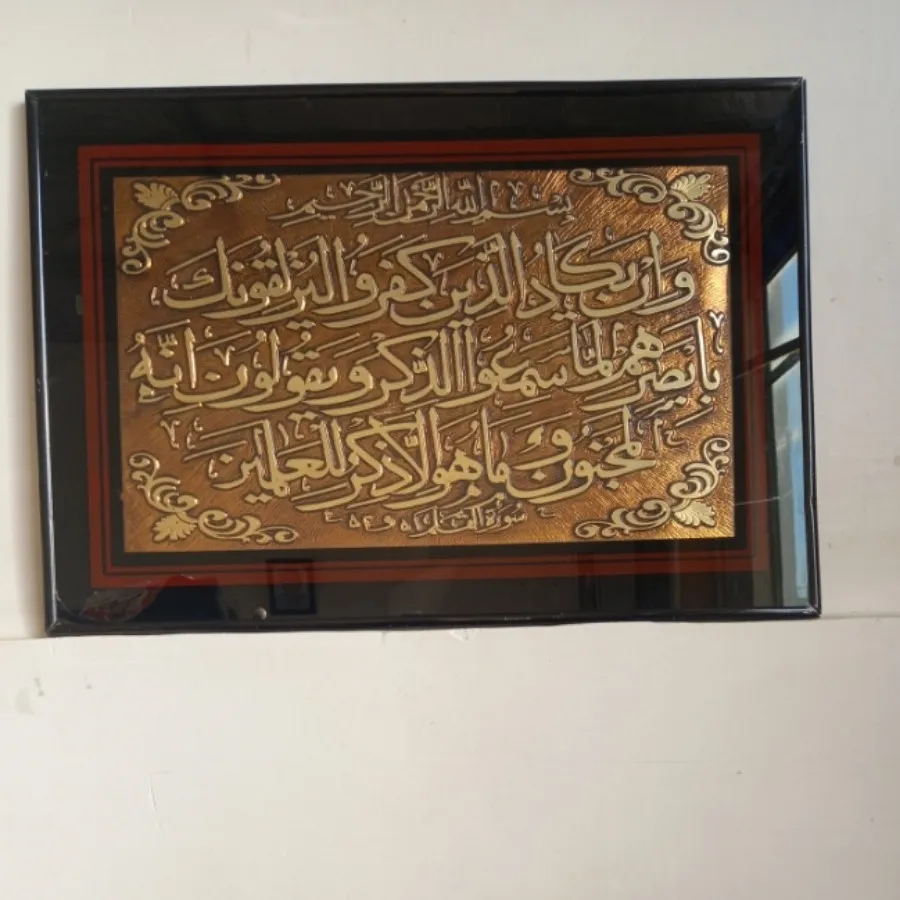 بسم الله الرحمن الرحيم
وان يكاد الذين كفروا ليزلقونك
بابصرهم لما سمعوا الذكر ويقولون انه
لمجنون ٥١ وما هو الا ذكر للعلمين
سورة القلم ٥١ و ٥٢